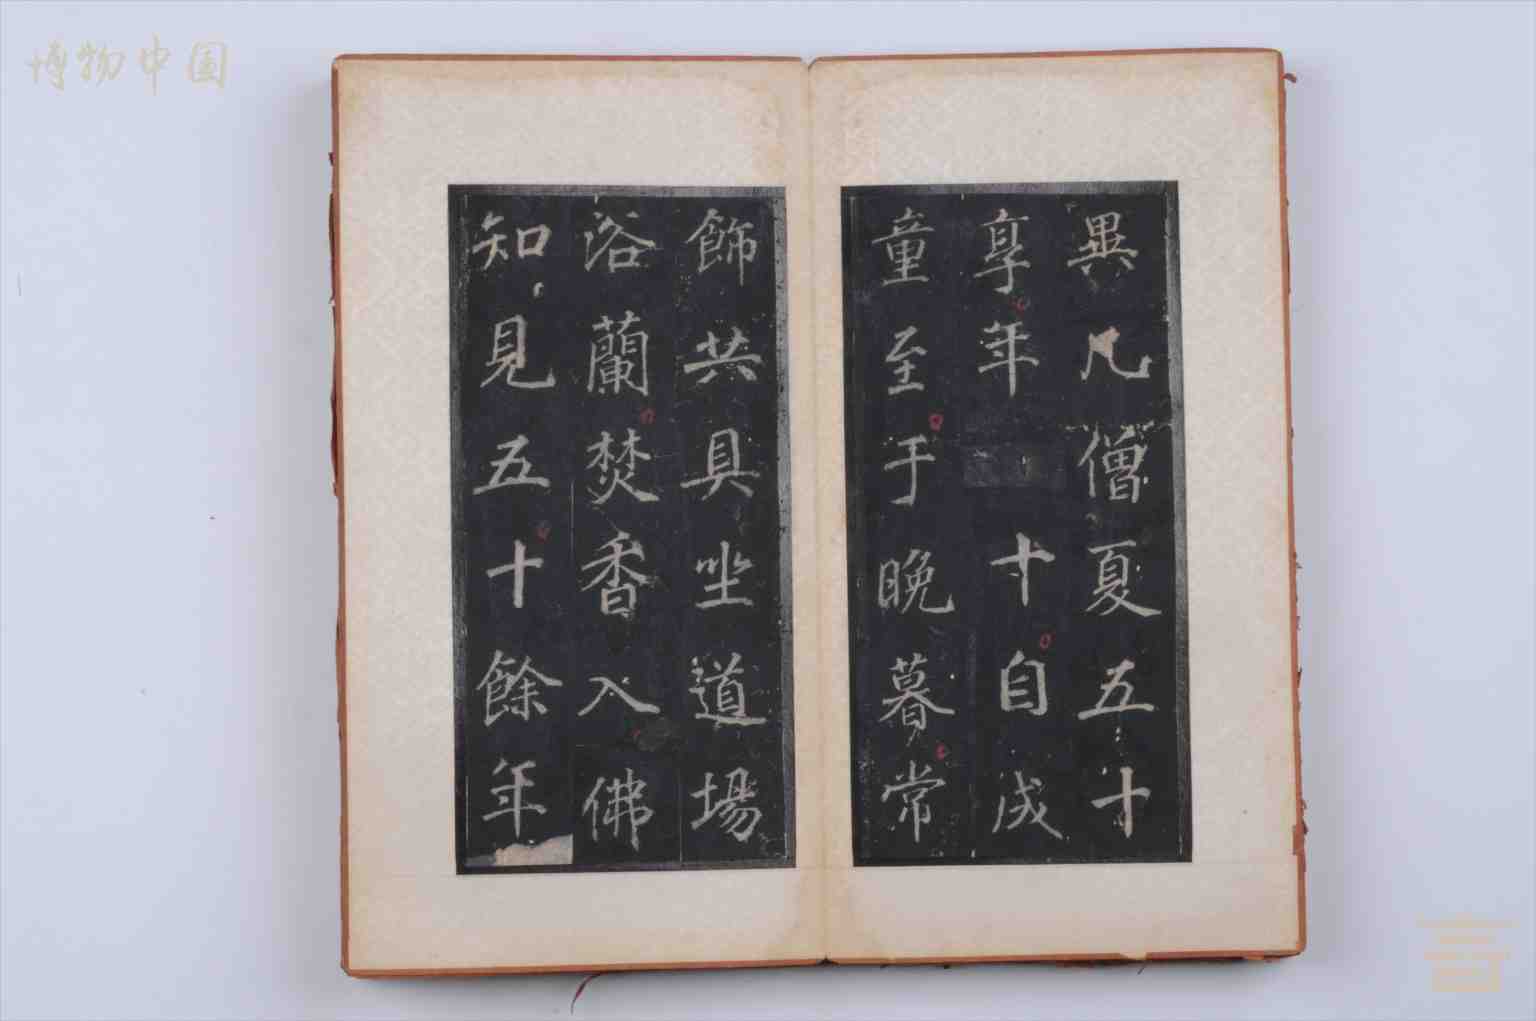 博物中国
異凡僧夏五十
享年十自成
童至于晚暮常
飾共具坐道場
浴蘭焚香入佛
知見五十餘年